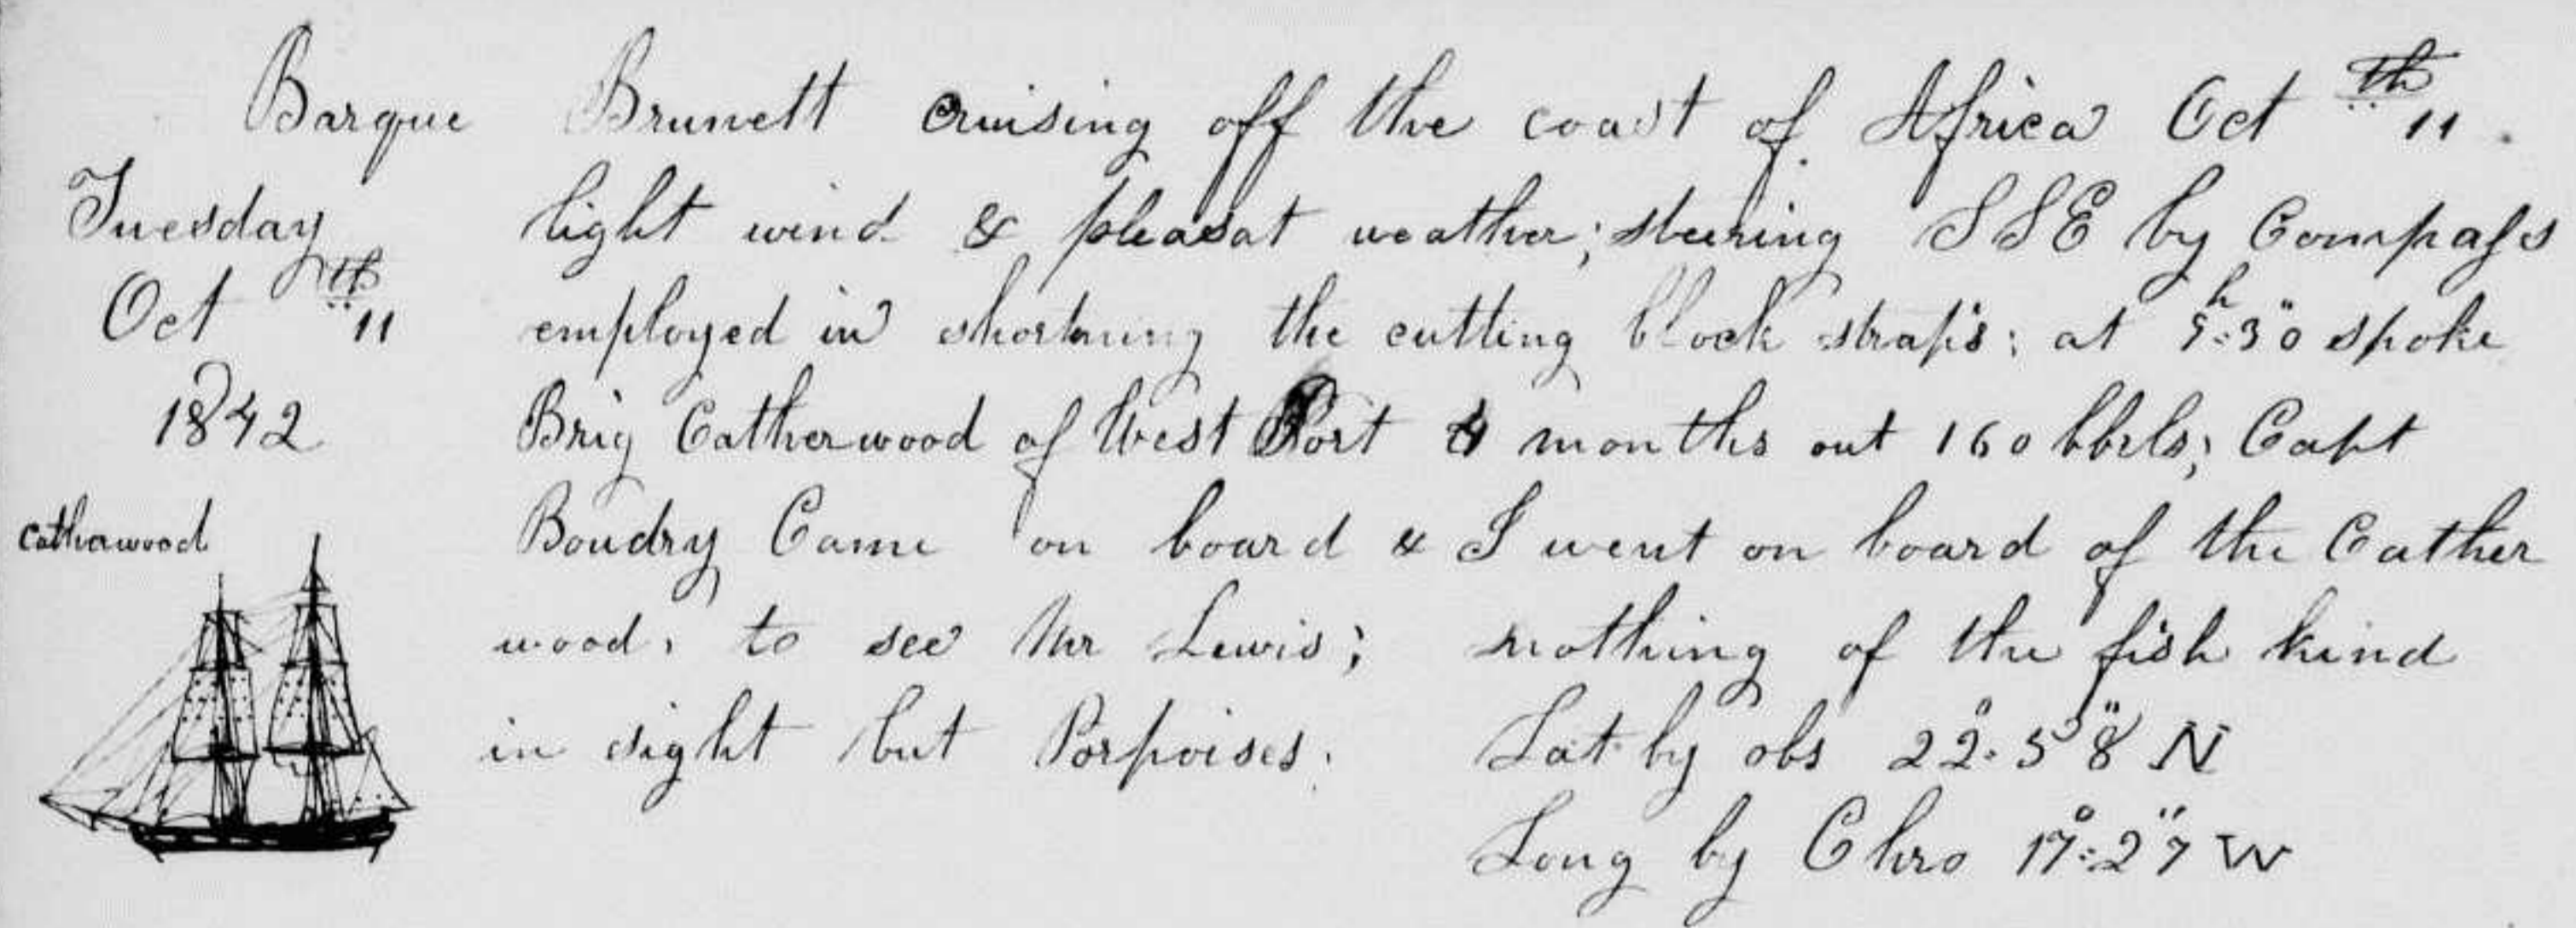 Barque Brunett cruising off the coast of Africa Oct 11th
Tuesday
Oct 11th
1842
catherwood
light wind & pleasat weather; steering SSE by Compass
employed in shortning the cutting block straps; at 9h:30" spoke
Brig Catherwood of West Port 4 months out 160 bbrls; Capt
Boudry Came on board & I went on board of the Cather
wood, to see Mr Lewis; nothing of the fish kind
in sight but Porpoises. Lat by obs 22°:58" N
Long by Chro 17°:27" W